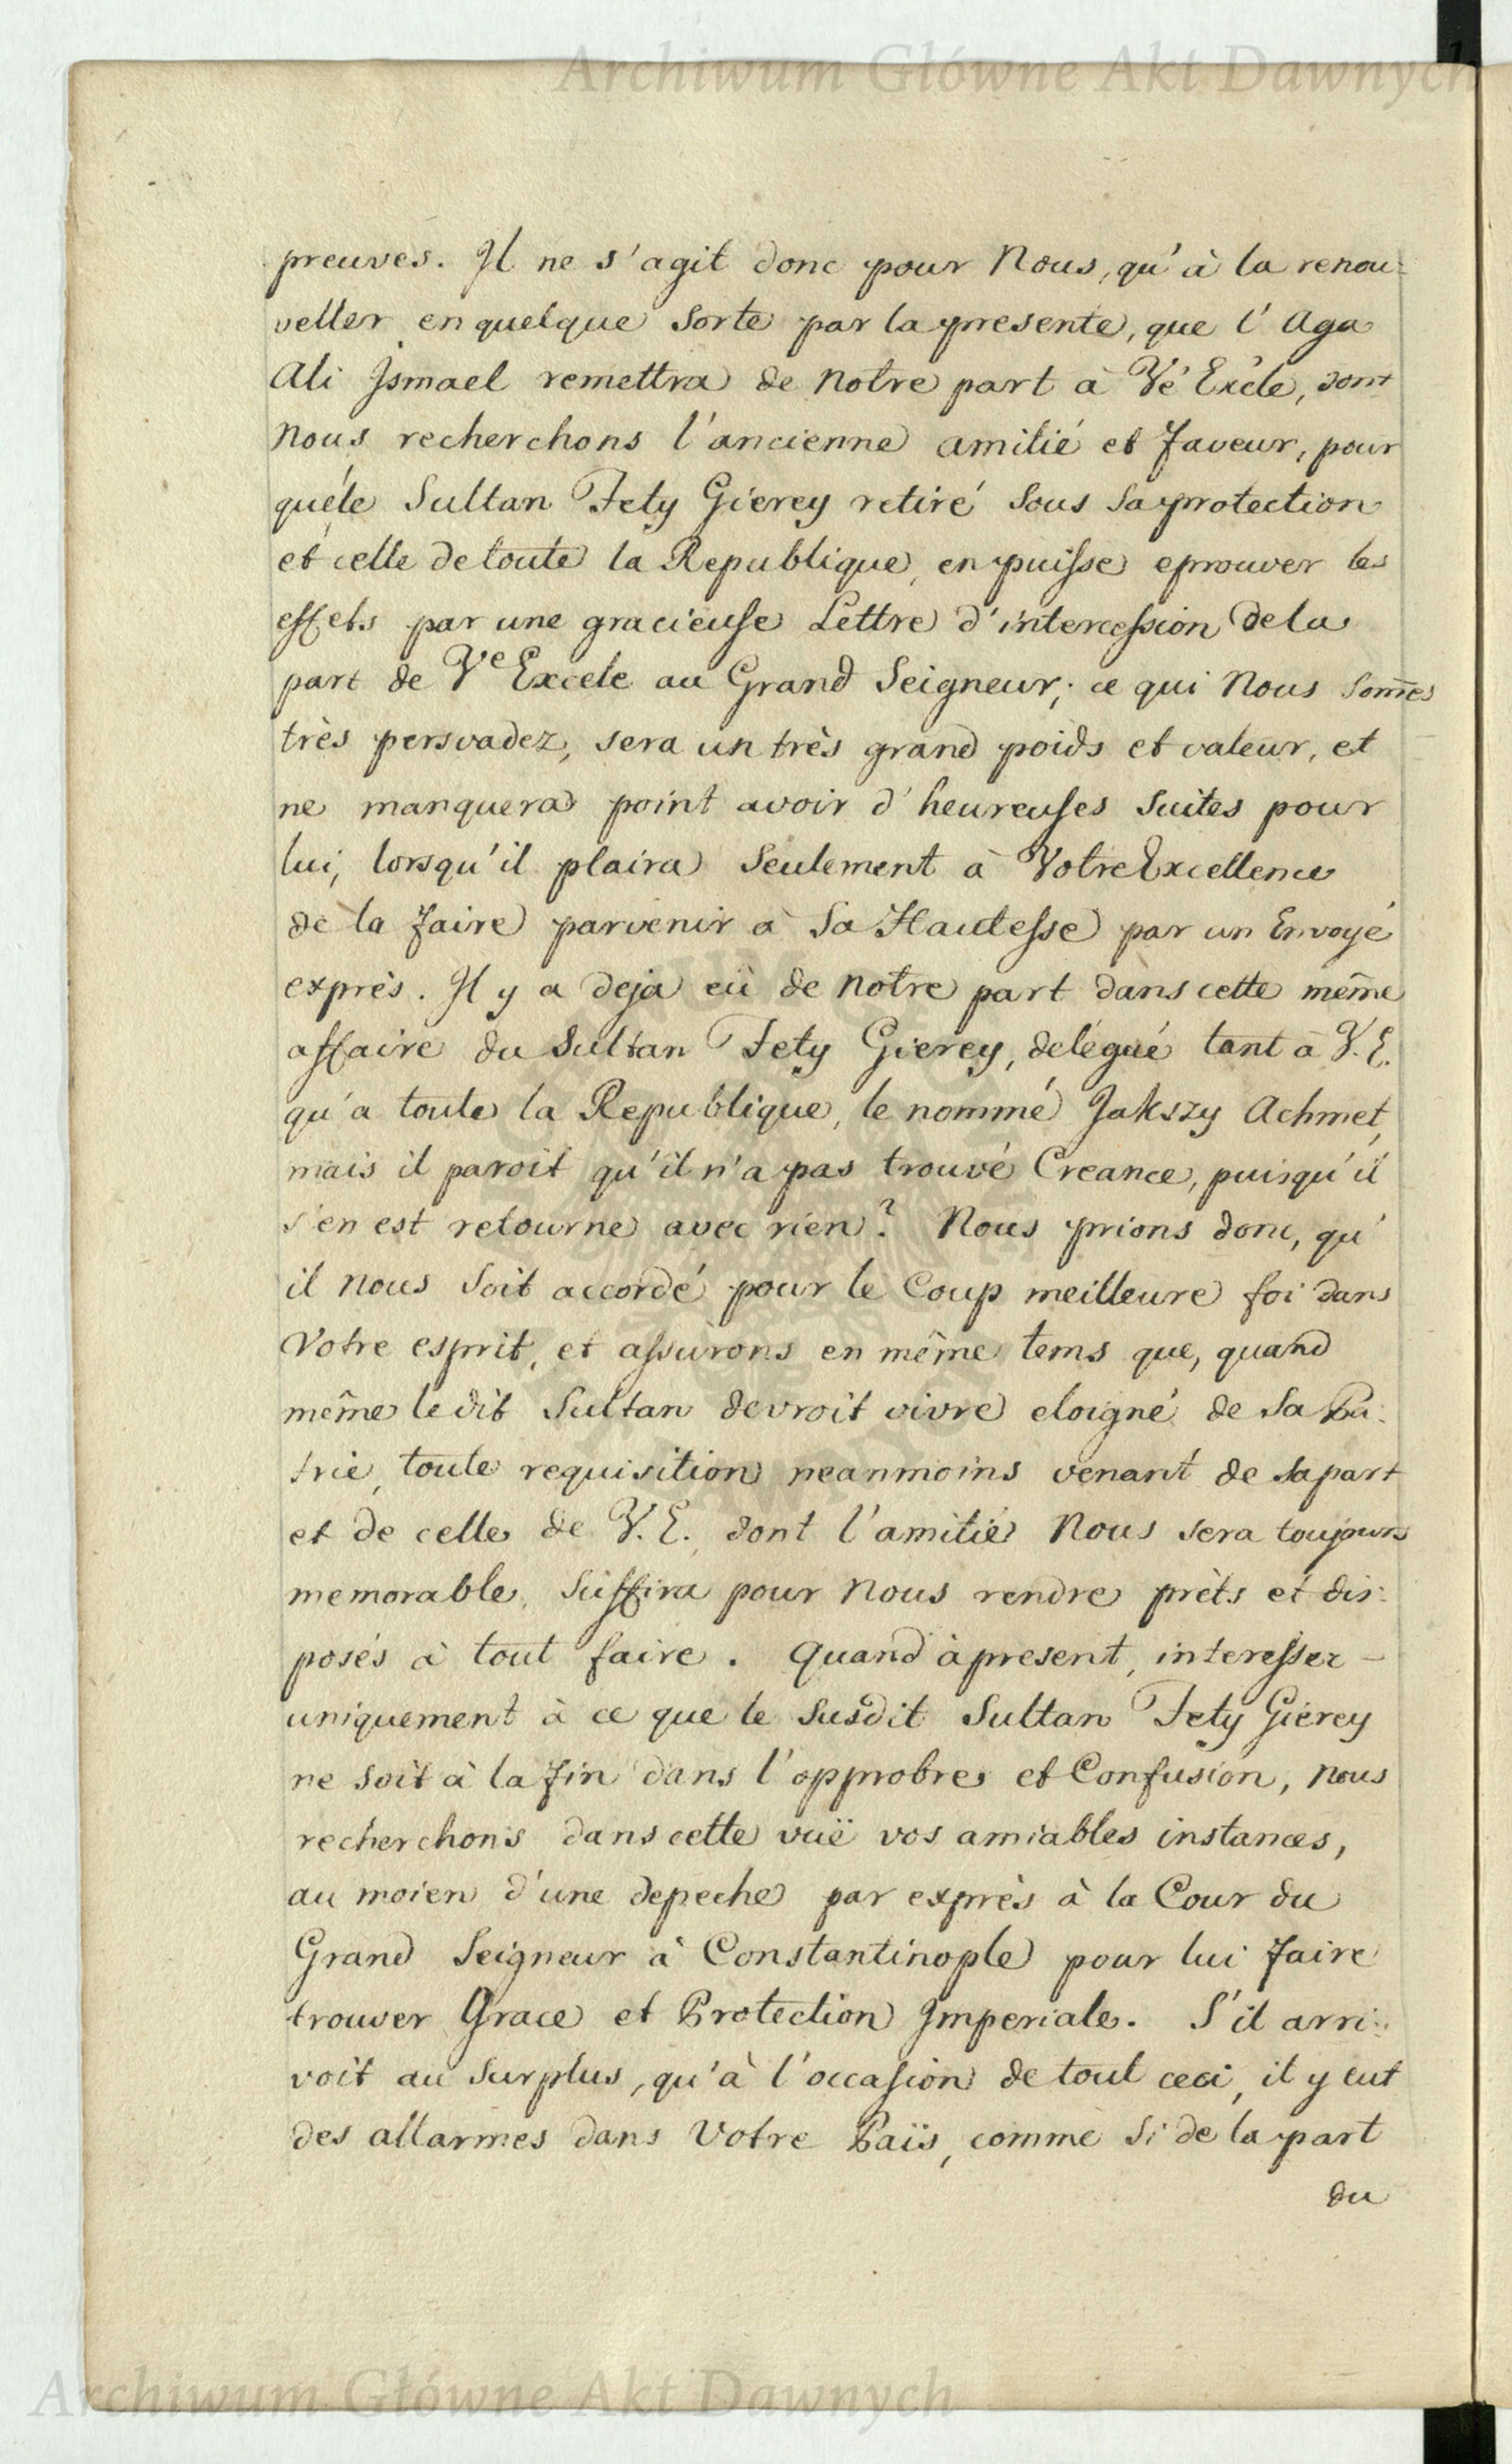 Archiwum Główne Akt Dawnych
preuves. Il ne s'agit donc pour Nous, qu'à la renou=
veller en quelque sorte par la presente, que l'Aga
Ali Ismael remettra de Notre part à Ve Excle, dont
Nous recherchons l'ancienne amitié et faveur, pour
que le Sultan Fety Gierey retiré sous sa protection
et celle de toute la Republique, en puisse eprouver les
effets par une gracieuse Lettre d'intercession de la
part de Ve Excele au Grand Seigneur; ce qui Nous som̄es
très persvadez, sera un très grand poids et valeur, et
ne manquera point avoir d'heureuses suites pour
lui, lorsqu'il plaira seulement à Votre Excellence
de la faire parvenir à Sa Hautesse par un Envoyé
exprès. Il y a deja eü de notre part dans cette même
affaire du Sultan Fety Gierey, delégué tant à V. E.
qu'a toute la Republique, le nommé Jakszy Achmet,
mais il paroit qu'il n'a pas trouvé Creance, puisqu'il
s'en est retourne avec rien? Nous prions donc, qu'
il nous soit accordé pour le Coup meilleure foi dans
Votre esprit, et assurons en même tems que, quand
même le dit Sultan devroit vivre eloigné de Sa Pa:
trie, toute requisition neanmoins venant de sa part
et de celle de V. E. dont l'amitié Nous sera toujours
memorable, suffira pour Nous rendre prèts et dis:
posés à tout faire. Quand à present, interesser -
uniquement à ce que le susdit Sultan Fety Gierey
ne soit à la fin dans l'opprobre et Confusion, nous
recherchons dans cette vuë vos amiables instances,
au moien d'une depeche par exprès à la Cour du
Grand Seigneur à Constantinople pour lui faire
trouver Grace et Protection Imperiale. S'il arri:
voit au surplus, qu'à l'occasion de tout ceci, il y eut
des allarmes dans Votre Païs, comme si de la part
du
Archiwum Główne Akt Dawnych